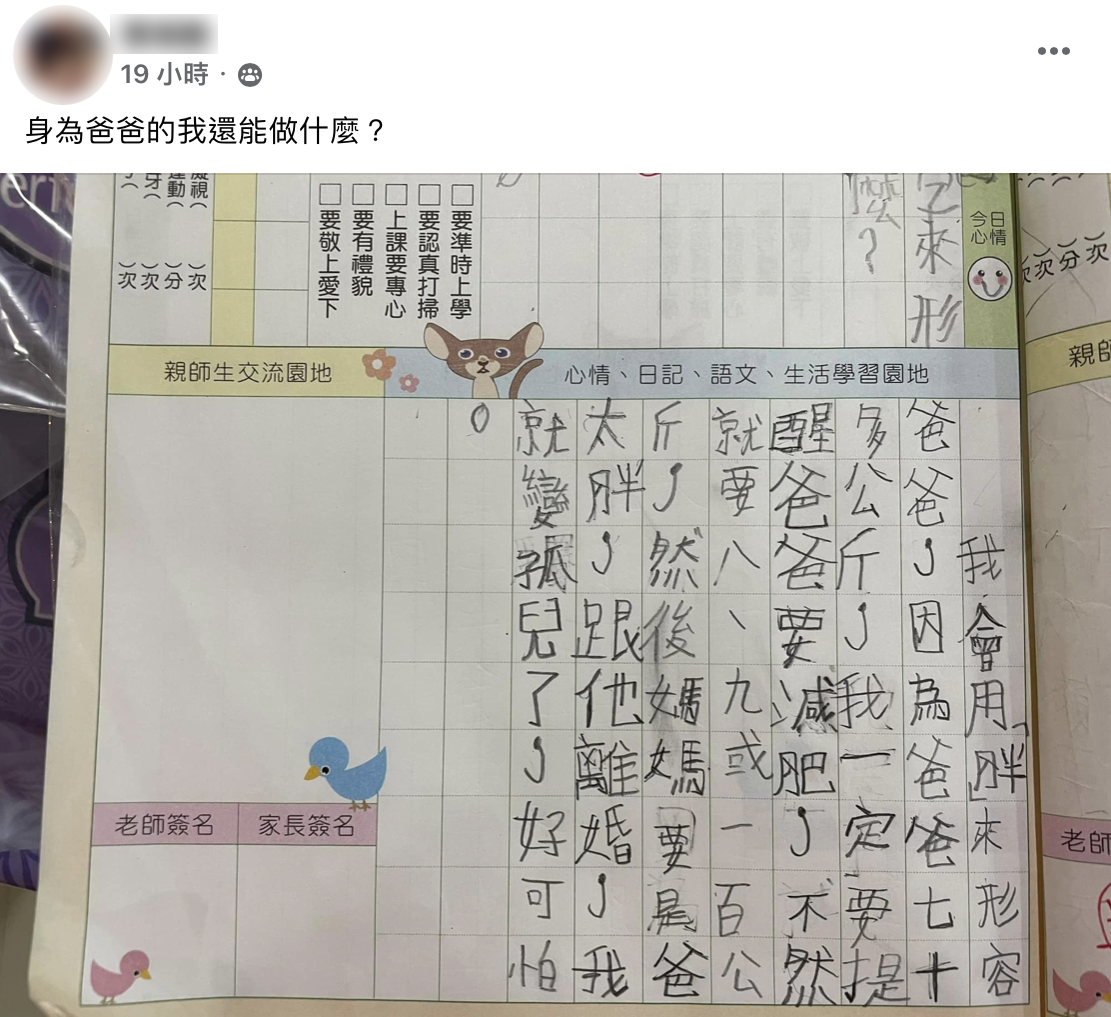 19 小時
身為爸爸的我還能做什麼？
次
分
次
次
今日心情
來形
麼？
□要準時上學
□要認真打掃
□上課要專心
□要有禮貌
□要敬上愛下
視（ ）次
運動（ ）分
牙（ ）次
（ ）次
心情、日記、語文、生活學習園地
我會用「胖」來形容
爸爸，因為爸爸七十
多公斤，我一定要提
醒爸爸要減肥，不然
就要八、九或一百公
斤，然後媽媽要是爸
太胖，跟他離婚，我
就變孤兒了，好可怕
。
親師生交流園地
老師簽名
家長簽名
親師
老師